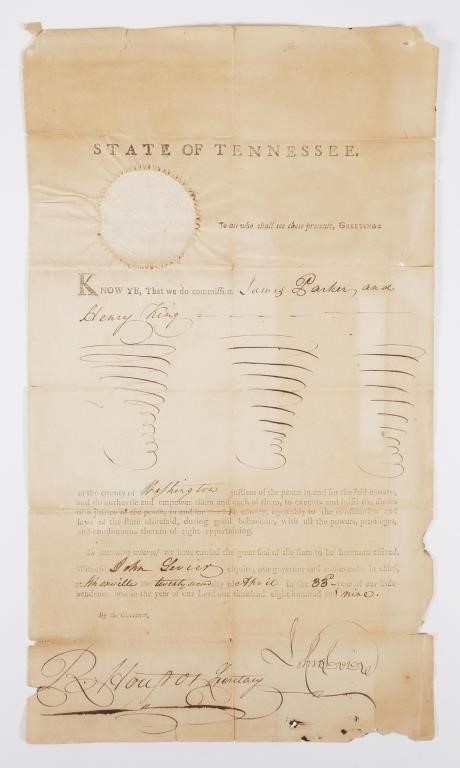 STATE OF TENNESSEE.
To all who shall see these presents, GREETING:
KNOW YE, That we do commission James Parker, and
Henry King
of the county of Washington justices of the peace in and for the said county,
and do authorise and empower them and each of them, to execute and fulfil the duties
of a justice of the peace, in and for the said county, agreeably to the constitution and
laws of the state aforesaid, during good behaviour, with all the powers, privileges,
and emoluments thereto of right appertaining.
In testimony whereof we have caused the great seal of the state to be hereunto affixed.
Witness John Sevier esquire, our governor and commander in chief,
at Knoxville the twenty second day of April in the 33d year of our inde-
pendence and in the year of our Lord one thousand eight hundred and nine.
By the Governor,
John Sevier
R. Houston Secretary